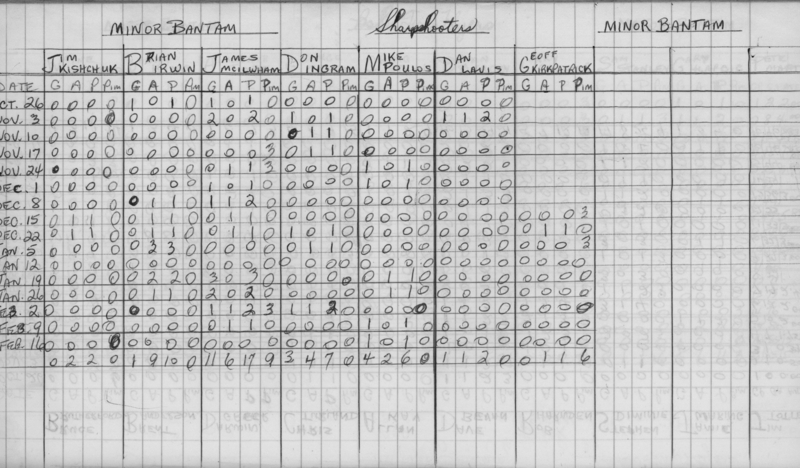 MINOR BANTAM Sharpshooters MINOR BANTAM
JIM KISHCHUK BRIAN IRWIN JAMES MCILWHAM DON INGRAM MIKE POULOS DAN LAVIS GEOFF KIRKPATRICK
DATE G A P Pim G A P Pim G A P Pim G A P Pim G A P Pim G A P Pim G A P Pim
OCT. 26 0 0 0 0 1 0 1 0 1 0 1 0 0 0 0 0 0 0 0 0 0 0 0 0
NOV. 3 0 0 0 0 2 0 2 0 1 0 1 0 0 0 0 0 1 1 2 0
NOV. 10 0 0 0 0 0 0 0 0 0 0 0 0 0 1 1 0 0 0 0 0 0 0 0 0
NOV. 17 0 0 0 0 0 0 0 0 0 0 0 3 0 1 1 0 0 0 0 0 0 0 0 0
NOV. 24 0 0 0 0 0 0 0 0 0 1 1 3 0 0 0 0 1 0 1 0 0 0 0 0
DEC. 1 0 0 0 0 0 0 0 0 1 0 1 0 0 0 0 0 1 0 1 0 0 0 0 0
DEC. 8 0 0 0 0 0 1 1 0 1 1 2 0 0 0 0 0 0 0 0 0 0 0 0 0
DEC. 15 0 1 1 0 0 1 1 0 0 1 1 0 0 0 0 0 0 0 0 0 0 0 0 0 0 0 0 3
DEC. 22 0 1 1 0 0 1 1 0 0 1 1 0 1 0 1 0 0 0 0 0 0 0 0 0 0 1 1 0
JAN. 5 0 0 0 0 0 3 3 0 0 0 0 0 0 1 1 0 0 0 0 0 0 0 0 0 0 0 0 3
JAN 12 0 0 0 0 0 0 0 0 0 0 0 0 0 0 0 0 0 0 0 0 0 0 0 0 0 0 0 0
JAN 19 0 0 0 0 0 2 2 0 3 0 3 0 0 0 0 0 0 1 1 0 0 0 0 0 0 0 0 0
JAN. 26 0 0 0 0 0 1 1 0 2 0 2 0 0 0 0 0 0 1 1 0 0 0 0 0 0 0 0 0
FEB. 2 0 0 0 0 0 0 0 0 1 1 2 3 1 1 2 0 0 0 0 0 0 0 0 0 0 0 0 0
FEB. 9 0 0 0 0 0 0 0 0 0 1 1 0 0 0 0 0 1 0 1 0 0 0 0 0 0 0 0 0
FEB. 16 0 0 0 0 0 0 0 0 0 0 0 0 0 0 0 0 1 0 1 0 0 0 0 0 0 0 0 0
0 2 2 0 1 9 10 0 11 6 17 9 3 4 7 0 4 2 6 0 1 1 2 0 0 1 1 6